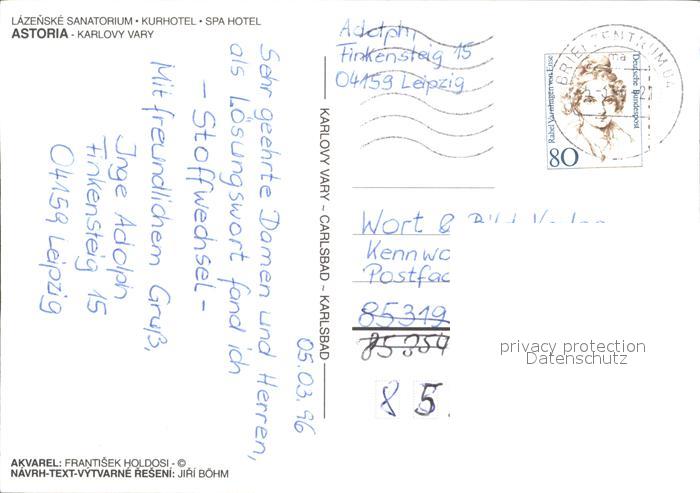 LÁZEŇSKÉ SANATORIUM • KURHOTEL • SPA HOTEL
ASTORIA - KARLOVY VARY
Sehr geehrte Damen und Herren,
als Lösungswort fand ich
- Stoffwechsel -
Mit freundlichem Gruß,
Inge Adolph
Finkensteig 15
04159 Leipzig
05.03.96
AKVAREL: FRANTIŠEK HOLDOSI - ©
NÁVRH-TEXT-VÝTVARNÉ ŘEŠENÍ: JIŘÍ BÖHM
KARLOVY VARY ~ CARLSBAD ~ KARLSBAD
Adolph
Finkensteig 15
04159 Leipzig
BRIEFZENTRUM 04
Rahel Varnhagen von Ense
Deutsche Bundespost
80
Wort & Bild Verlag
Kennwo
Postfac
85319
85354
8 5
privacy protection
Datenschutz